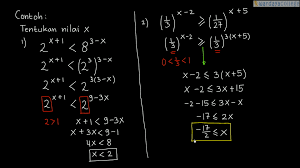 Contoh:
Tentukan nilai x
1) 2^(x+1) < 8^(3-x)
2^(x+1) < (2^3)^(3-x)
2^(x+1) < 2^(3(3-x))
2^(x+1) < 2^(9-3x)
2>1 x+1 < 9-3x
x+3x < 9-1
4x < 8
x < 2
2) (1/3)^(x-2) ≥ (1/27)^(x+5)
(1/3)^(x-2) ≥ (1/3)^(3(x+5))
0 < 1/3 < 1
x-2 ≤ 3(x+5)
x-2 ≤ 3x+15
-2-15 ≤ 3x-x
-17 ≤ 2x
-17/2 ≤ x